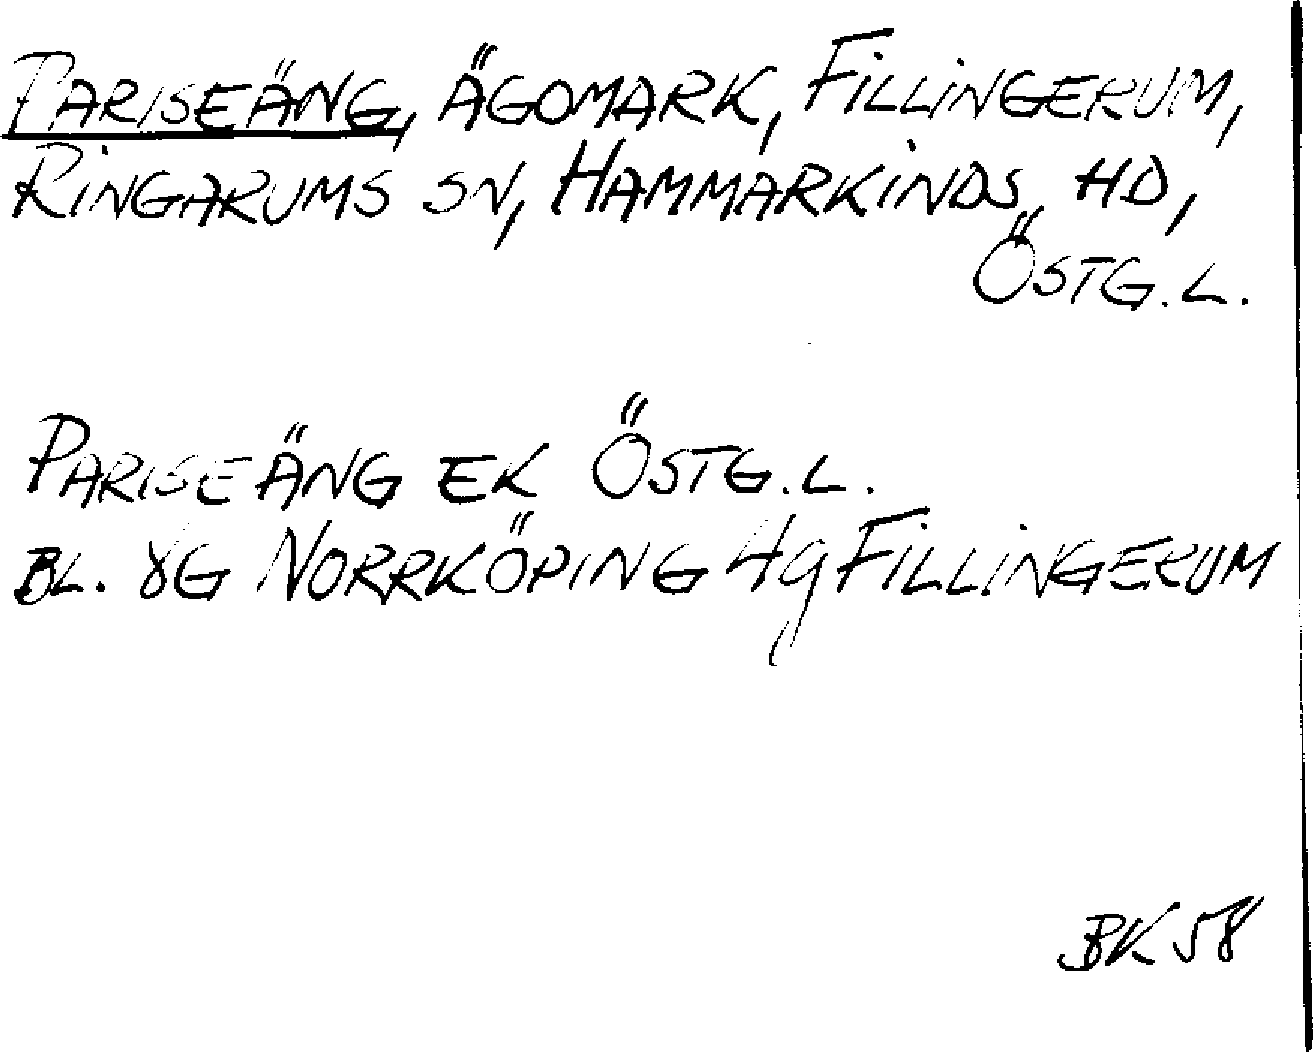 PARISEÄNG, ÄGOMARK, FILLINGERUM,
RINGARUMS SN, HAMMARKINDS HD,
ÖSTG.L.
PARISEÄNG EK ÖSTG.L.
BL. 8G NORRKÖPING 4g FILLINGERUM
BK 58